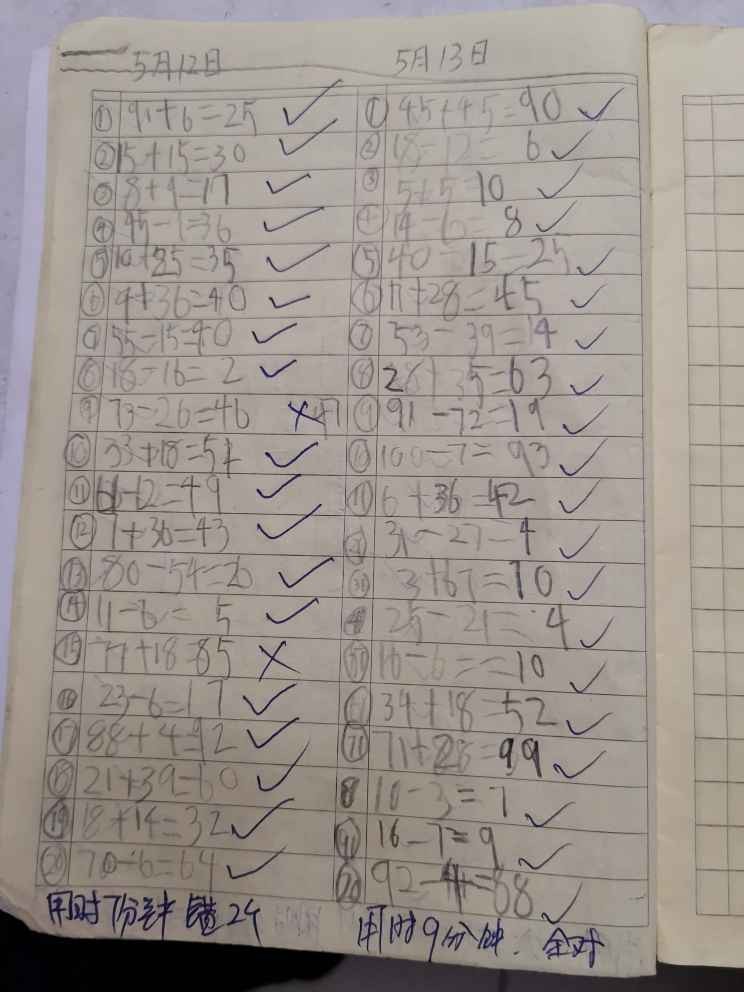 5月12日
① 91+6=25 ✓
② 15+15=30 ✓
③ 8+9=17 ✓
④ 45-1=36 ✓
⑤ 10+25=35 ✓
⑥ 9+36=40 ✓
⑦ 55-15=40 ✓
⑧ 18-16=2 ✓
⑨ 73-26=46 ×47
⑩ 33+18=51 ✓
⑪ 61-12=49 ✓
⑫ 7+36=43 ✓
⑬ 80-54=26 ✓
⑭ 11-6=5 ✓
⑮ 77+18=85 ×
⑯ 23-6=17 ✓
⑰ 88+4=92 ✓
⑱ 21+39=60 ✓
⑲ 18+14=32 ✓
⑳ 70-6=64 ✓
用时7分钟 错2个
5月13日
① 45+45=90 ✓
② 18-12=6 ✓
③ 5+5=10 ✓
④ 14-6=8 ✓
⑤ 40-15=25 ✓
⑥ 17+28=45 ✓
⑦ 53-39=14 ✓
⑧ 28+35=63 ✓
⑨ 91-72=19 ✓
⑩ 100-7=93 ✓
⑪ 6+36=42 ✓
31-27=4 ✓
3+67=70 ✓
25-21=4 ✓
16-6==10 ✓
34+18=52 ✓
71+28=99 ✓
8 10-3=7 ✓
16-7=9 ✓
⑳ 92-4=88 ✓
用时9分钟. 全对